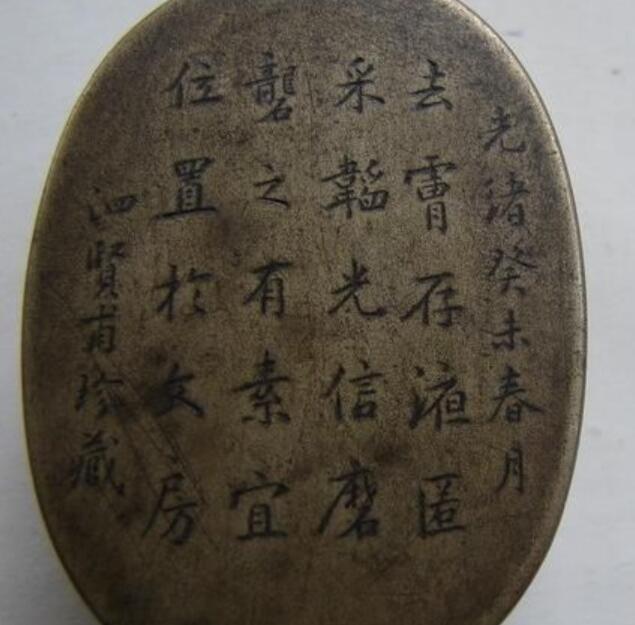 光緒癸未春月
去霄存液匿
采韜光信磨
礱之有素宜
位置於文房
泗賢甫珍藏